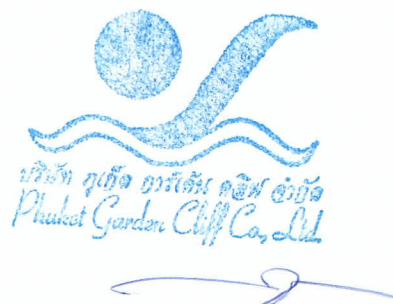 บริษัท ภูเก็ต การ์เด้น คลิฟ จำกัด
Phuket Garden Cliff Co., Ltd.